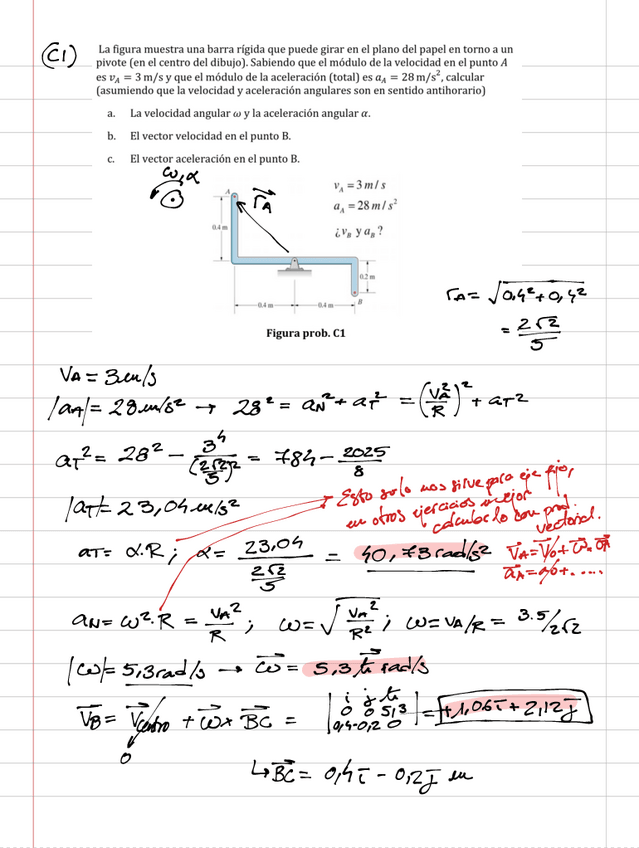 C1)
La figura muestra una barra rígida que puede girar en el plano del papel en torno a un
pivote (en el centro del dibujo). Sabiendo que el módulo de la velocidad en el punto A
es v_A = 3 m/s y que el módulo de la aceleración (total) es a_A = 28 m/s², calcular
(asumiendo que la velocidad y aceleración angulares son en sentido antihorario)
a. La velocidad angular ω y la aceleración angular α.
b. El vector velocidad en el punto B.
c. El vector aceleración en el punto B.
ω, α
A
r_A
v_A = 3 m / s
a_A = 28 m / s²
¿v_B y a_B ?
0.4 m
0.2 m
0.4 m
0.4 m
B
Figura prob. C1
r_A = √(0,4² + 0,4²)
= 2√2/5
V_A = 3 m/s
|a_A| = 28 m/s² → 28² = a_N² + a_T² = (V_A²/R)² + a_T²
a_T² = 28² - 3⁴/(2√2/5)² = 784 - 2025/8
|a_T| = 23,04 m/s²
Esto solo nos sirve para eje fijo,
en otros ejercicios mejor
calcularlo con prod.
vectorial.
a_T = α.R ; α = 23,04/(2√2/5) = 40,73 rad/s²
V_A = V_0 + ω.
a_A = a_0 + ....
a_N = ω².R = V_A²/R ; ω = √(V_A²/R²) ; ω = V_A/R = 3.5/2√2
|ω| = 5,3 rad/s → ω = 5,3 k rad/s
V_B = V_centro + ω x BC = | i j k 0 0 5,3 0,4 -0,2 0 | = +1,06 i + 2,12 j
0
↳ BC = 0,4 i - 0,2 j m